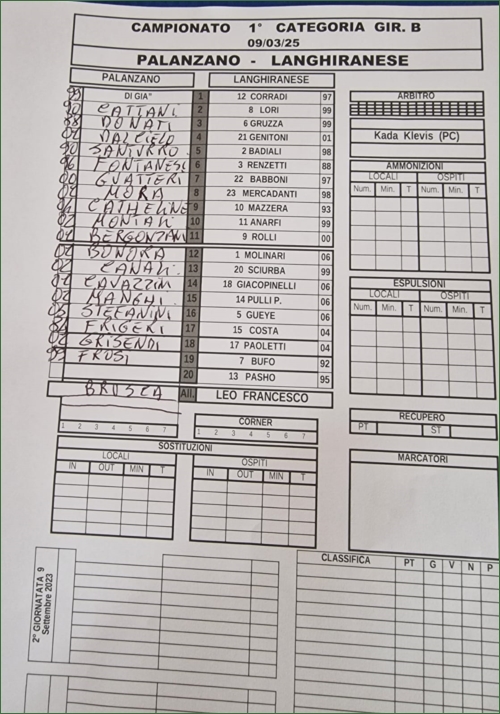 CAMPIONATO 1° CATEGORIA GIR. B
09/03/25
PALANZANO - LANGHIRANESE
PALANZANO LANGHIRANESE
DI GIA' 1 12 CORRADI 97
90 CATTANI 2 8 LORI 99
88 DONATI 3 6 GRUZZA 99
4 21 GENITONI 01
5 2 BADIALI 98
96 FONTANESI 6 3 RENZETTI 88
GUATTERI 7 22 BABBONI 97
MORA 8 23 MERCADANTI 98
9 10 MAZZERA 93
10 11 ANARFI 99
BERGONZANI 11 9 ROLLI 00
BONORA 12 1 MOLINARI 06
02 CANALI 13 20 SCIURBA 99
CAVAZZINI 14 18 GIACOPINELLI 06
02 MANGHI 15 14 PULLI P. 06
STEFANINI 16 5 GUEYE 06
FRIGERI 17 15 COSTA 04
GRISENDI 18 17 PAOLETTI 04
FROSI 19 7 BUFO 92
20 13 PASHO 95
BRUSCA All. LEO FRANCESCO
CORNER
1 2 3 4 5 6 7 1 2 3 4 5 6 7
SOSTITUZIONI
LOCALI OSPITI
IN OUT MIN T IN OUT MIN T
ARBITRO
Kada Klevis (PC)
AMMONIZIONI
LOCALI OSPITI
Num. Min. T Num. Min. T
ESPULSIONI
LOCALI OSPITI
Num. Min. T Num. Min. T
RECUPERO
PT ST
MARCATORI
2° GIORNATATA 9
Settembre 2023
CLASSIFICA PT G V N P